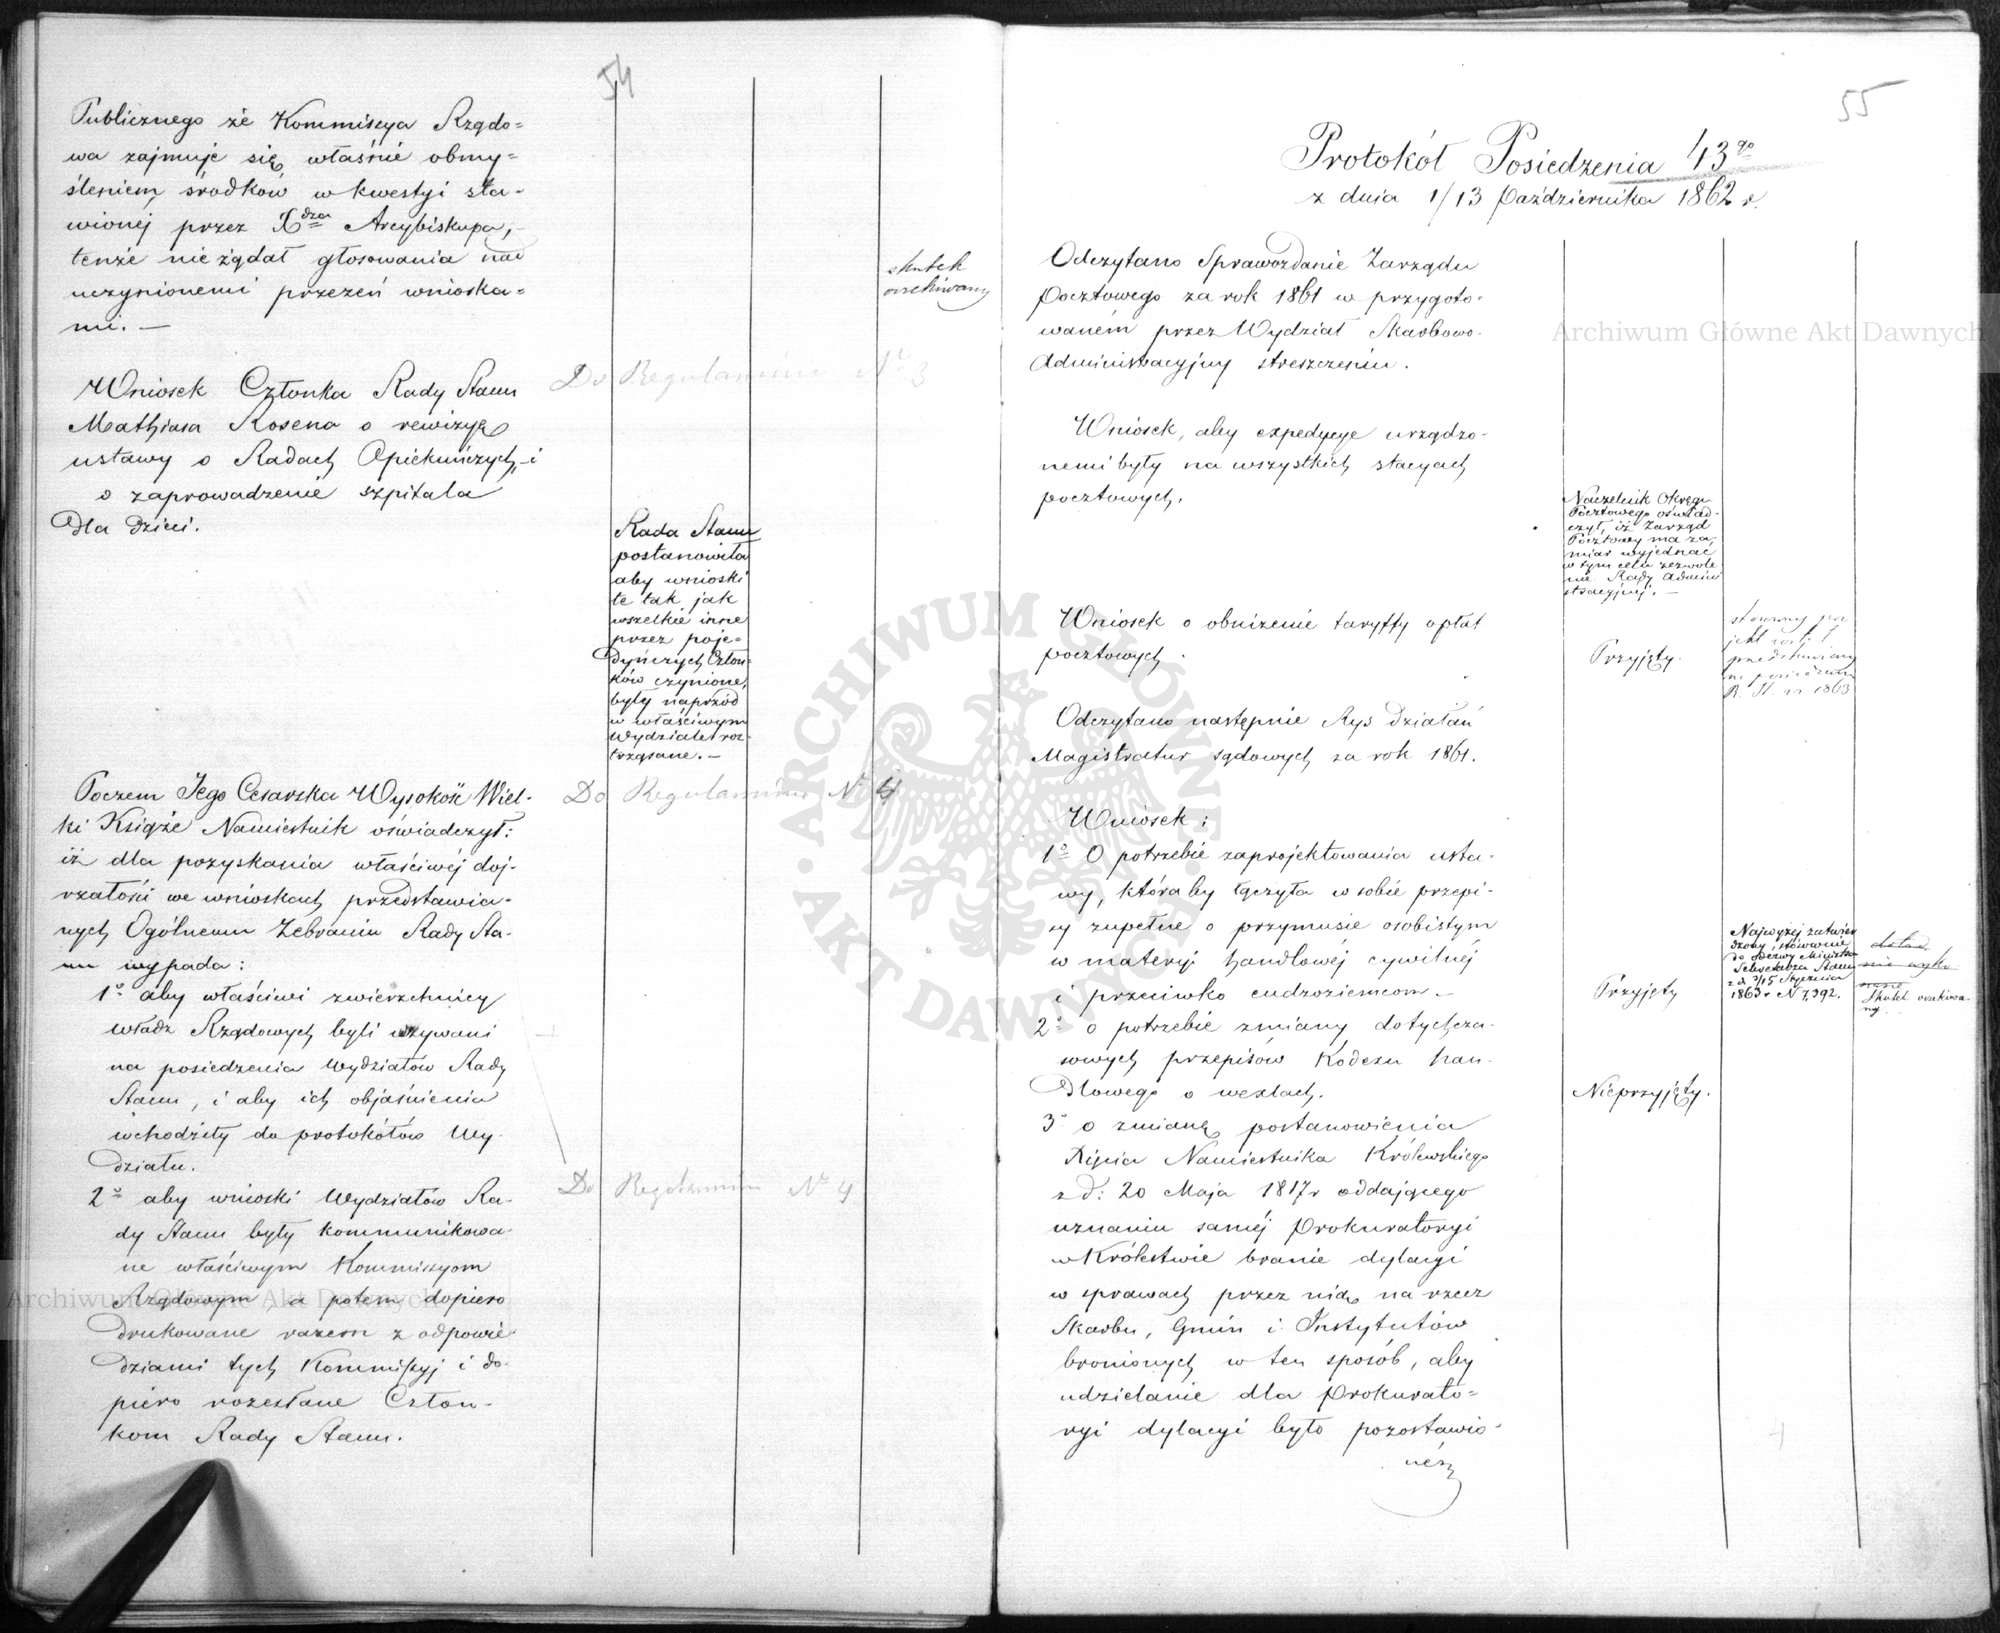 54
Publicznego że Kommissya Rządo=
wa zajmuje się właśnie obmy=
śleniem środków w kwestyi sta-
wionej przez Xdza Arcybiskupa,
tenże nie żądał głosowania nad
uczynionemi przezeń wnioska=
mi. —
skutek
oczekiwany
Wniosek Członka Rady Stanu
Mathiasa Rosena o rewizyę
ustawy o Radach Opiekuńczych, i
o zaprowadzenie szpitala
dla dzieci.
Do Regulaminu No 3
Rada Stanu
postanowiła
aby wnioski
te tak jak
wszelkie inne
przez poje-
dyńczych Człon-
ków czynione,
były naprzód
w właściwym
Wydziale roz-
trząsane. —
Poczem Jego Cesarska Wysokość Wiel-
ki Książe Namiestnik oświadczył:
iż dla pozyskania właściwéj doj-
rzałości we wnioskach przedstawia-
nych Ogólnemu Zebraniu Rady Sta-
nu wypada:
Do Regulaminu No 4
1o aby właściwi zwierzchnicy
władz Rządowych byli wzywani
na posiedzenia Wydziałów Rady
Stanu, i aby ich objaśnienia
wchodziły do protokółów Wy-
działu.
2o aby wnioski Wydziałów Ra-
dy Stanu były kommunikowa-
ne właściwym Kommissyom
Rządowym, a potem dopiero
drukowane razem z odpowie-
dziami tych Kommissyj i do-
piero rozesłane Człon-
kom Rady Stanu.
Do Regulaminu No 4
55
Protokół Posiedzenia 43go
z dnia 1/13 Października 1862 r.
Odczytano Sprawozdanie Zarządu
Pocztowego za rok 1861 w przygoto-
waném przez Wydział Skarbowo-
Administracyjny streszczeniu.
Wniosek, aby expedycye urządzo-
nemi były na wszystkich stacyach
pocztowych.
Naczelnik Okręgu
Pocztowego oświad-
czył, iż Zarząd
Pocztowy ma za-
miar wyjednać
w tym celu zezwole
nie Rady Admini
stracyjnéj. —
Wniosek o obniżenie taryffy opłat
pocztowych.
Przyjęty.
stosowny pro
jekt
przedstawiony
na posiedzeniu
R. St. 1863
Odczytano następnie Rys działań
Magistratur sądowych za rok 1861.
Wniosek:
1o O potrzebie zaprojektowania usta-
wy, któraby łączyła w sobie przepi-
sy zupełne o przymusie osobistym
w materyi handlowéj cywilnéj
i przeciwko cudzoziemcom. —
Przyjęty
Najwyżéj zatwier
dzony, stosownie
do odezwy Ministra
Sekretarza Stanu
z d. 3/15 Stycznia
1863 r N 7,392.
nie wyko
nane
Skutek oczekiwa-
ny
2o o potrzebie zmiany dotychcza-
sowych przepisów Kodexu han-
dlowego o wexlach.
Nieprzyjęty.
3o o zmianę postanowienia
Xięcia Namiestnika Królewskiego
z d: 20 Maja 1817 r oddającego
uznaniu saméj Prokuratoryi
w Królestwie branie dylacyi
w sprawach przez nią na rzecz
Skarbu, Gmin i Instytutów
bronionych w ten sposób, aby
udzielanie dla Prokurato=
ryi dylacyi było pozostawio-
ARCHIWUM GŁÓWNE AKT DAWNYCH
Archiwum Główne Akt Dawnych
Archiwum Główne Akt Dawnych